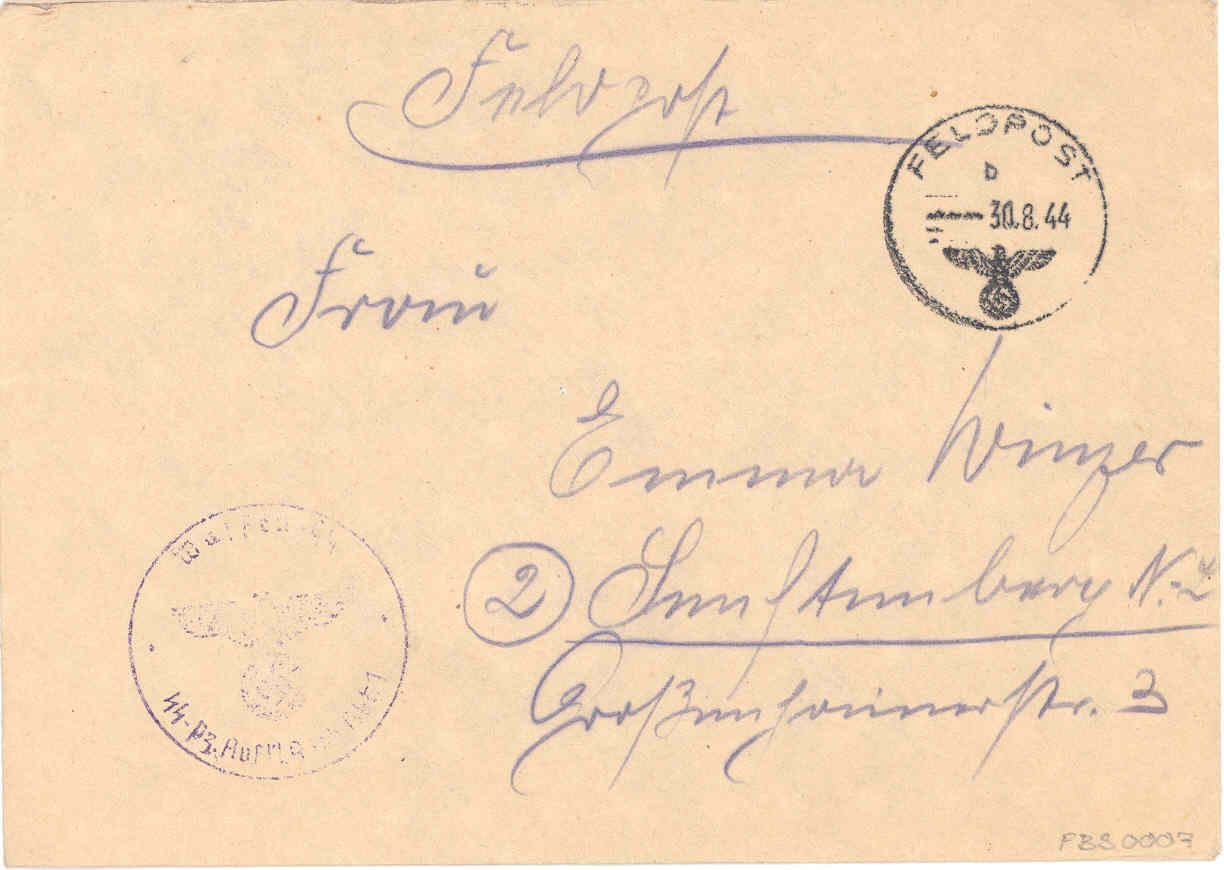 Feldpost
FELDPOST
b
30.8.44
Frau
Emma Winzer
② Senftenberg N.-L
Großenhainerstr. 3
Waffen-SS
SS-Pz. Aufkl.
FBS 0007